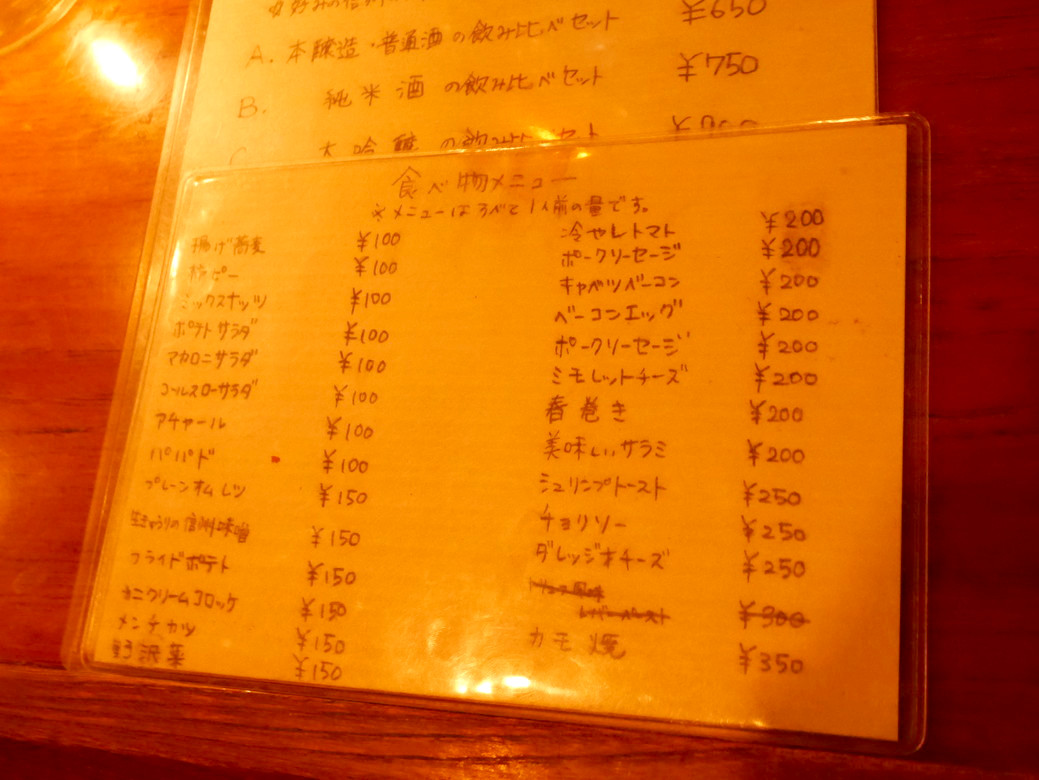 お好みの
A. 本醸造・普通酒の飲み比べセット ¥650
B. 純米酒の飲み比べセット ¥750
の飲み比べセット
食べ物メニュー
※メニューはすべて1人前の量です。
揚げ蕎麦 ¥100
柿ピー ¥100
ミックスナッツ ¥100
ポテトサラダ ¥100
マカロニサラダ ¥100
コールスローサラダ ¥100
アチャール ¥100
パパド ¥100
プレーンオムレツ ¥150
生きゅうりの信州味噌 ¥150
フライドポテト ¥150
カニクリームコロッケ ¥150
メンチカツ ¥150
野沢菜 ¥150
冷やしトマト ¥200
ポークソーセージ ¥200
キャベツベーコン ¥200
ベーコンエッグ ¥200
ポークソーセージ ¥200
ミモレットチーズ ¥200
春巻き ¥200
美味しいサラミ ¥200
シュリンプトースト ¥250
チョリソー ¥250
ダレッジオチーズ ¥250
トリュフ風味
レバーペースト ¥300
カモ焼 ¥350